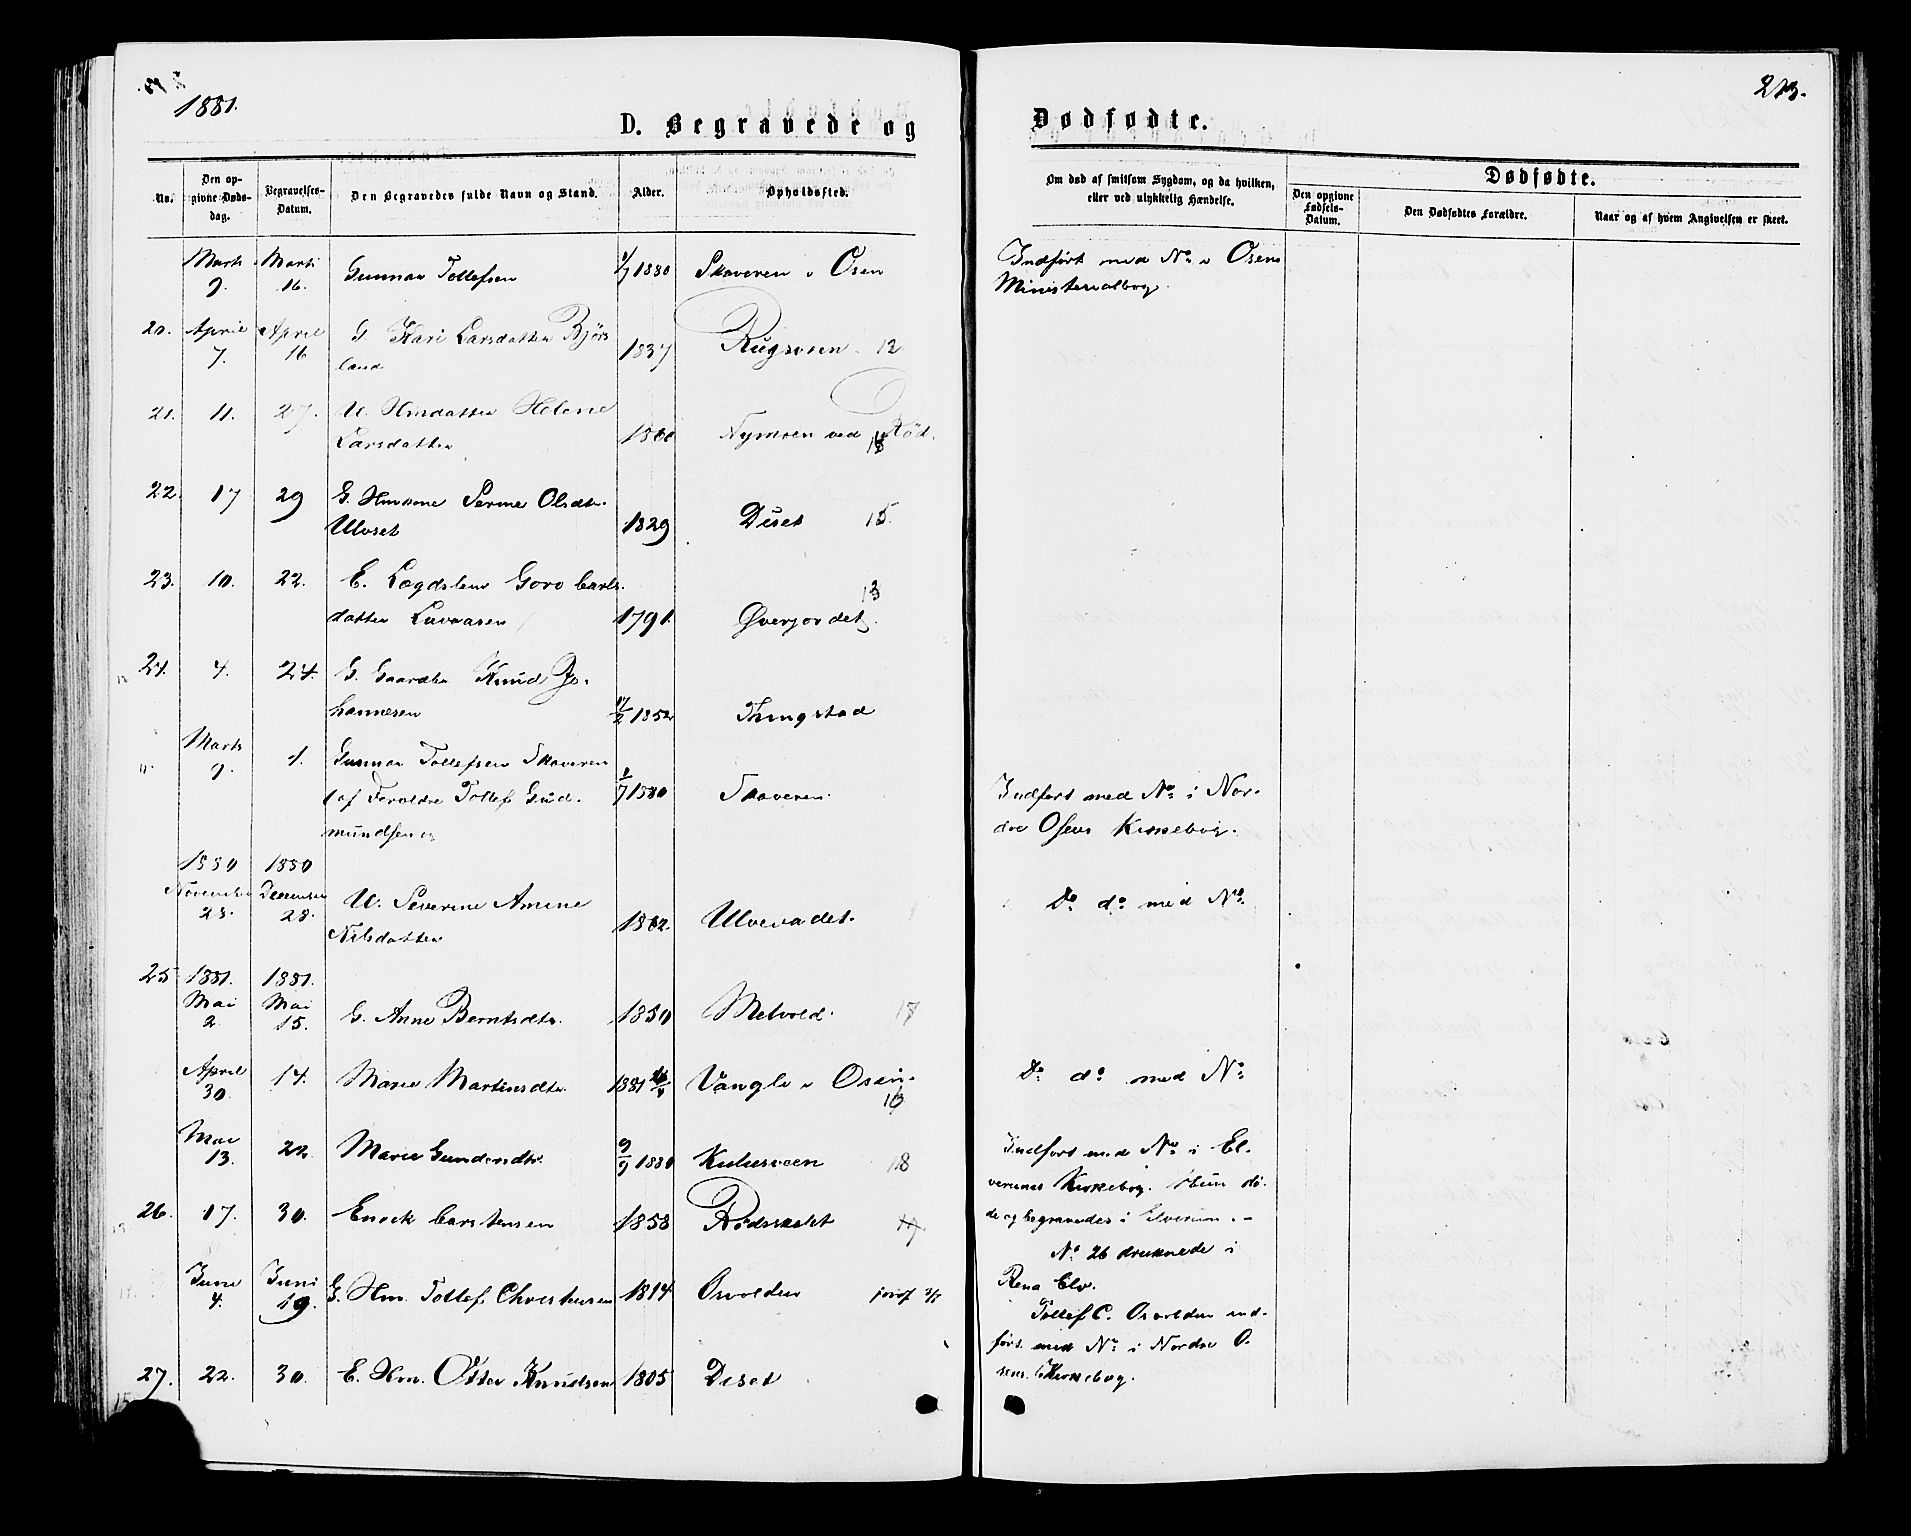 1881.
213.
D. Begravede og Dødfødte.
No.
Den op-
givne Døds-
dag.
Begravelses-
Datum.
Den Begravedes fulde Navn og Stand.
Alder.
Opholdssted.
Om død af smitsom Sygdom, og da hvilken,
eller ved ulykkelig Hændelse.
Dødfødte.
Den opgivne
Fødsels-
Datum.
Den Dødfødtes Forældre.
Naar og af hvem Angivelsen er skeet.
Marts 9. Marts 16. Gunnar Tollefsen 1/7 1880 Skaveren i Osen
Indført med No i Osens
Ministerialbog.
20. April 7. April 16 G. Kari Larsdatter Bjørs
land 1837 Rugsveen 12
21. 11. 27. U. Hmdatter Helene
Larsdatter 1860 Nymoen ved Rød.
22. 17 29 G. Hmkone Serine Olsdtr.
Ulvset 1829 Diset 15.
23. 10. 22. E. Lægdslem Goro Carls
datter Luvaasen 1791. Øverjordet 13
24. 4. 24. G. Gaardbr Knud Jo-
hannesen 17/2 1852 Tringstad
Marts 9. 1. Gunnar Tollefsen Skaveren
(af Foreldre Tollef Gud-
mundsen og 1/7 1880 Skaveren.
Indført med No i Nor-
dre Osens Kirkebog.
1880 November 23. 1880 December 28. U. Severine Amine
Nilsdatter 1862. Ulvevadet.
Do do med No
25 1881. Mai 2. 1881. Mai 15. G. Anne Berntsdtr. 1850 Melvold. 17
April 30. 14. Marie Martinsdtr. 1881 Vangle i Osen.
Do do med No
Mai 13. 22. Marie Gundersdtr. 9/9 1880 18
Indført med No i El-
verums Kirkebog. Hun dø-
de og begravedes i Elverum. -
26. 17. 30. Enock Carstensen 1858 Rødsskalet
No 26 druknede i
Rena Elv.
Juni 4. Juni 19. G. Hm. Tollef Christensen 1814 Osvolden
Tollef C. Osvolden ind-
ført med No i Nordre O-
sens Kirkebog.
27. 22. 30. E. Hm. Otter Knudsen 1805 Diset